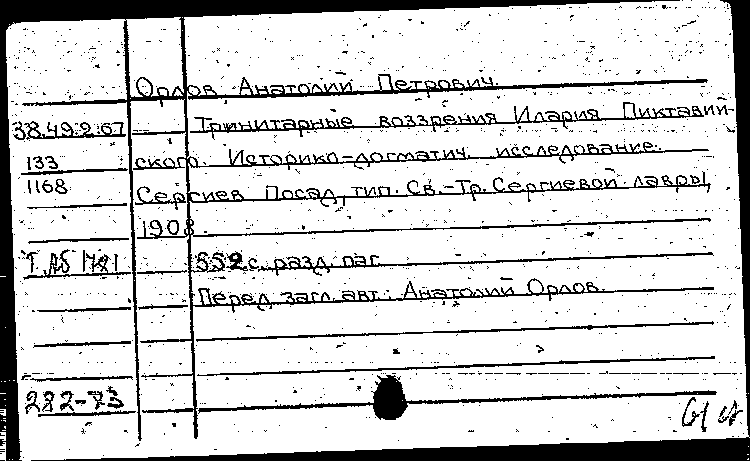 Орлов, Анатолий Петрович.
38.49.2.67 Тринитарные воззрения Илария Пиктавий-
133 ского. Историко-догматич. исследование.
1168 Сергиев Посад, тип. Св.-Тр. Сергиевой лавры,
1908.
552 с. разд. паг.
Перед загл. авт.: Анатолий Орлов.
282-73